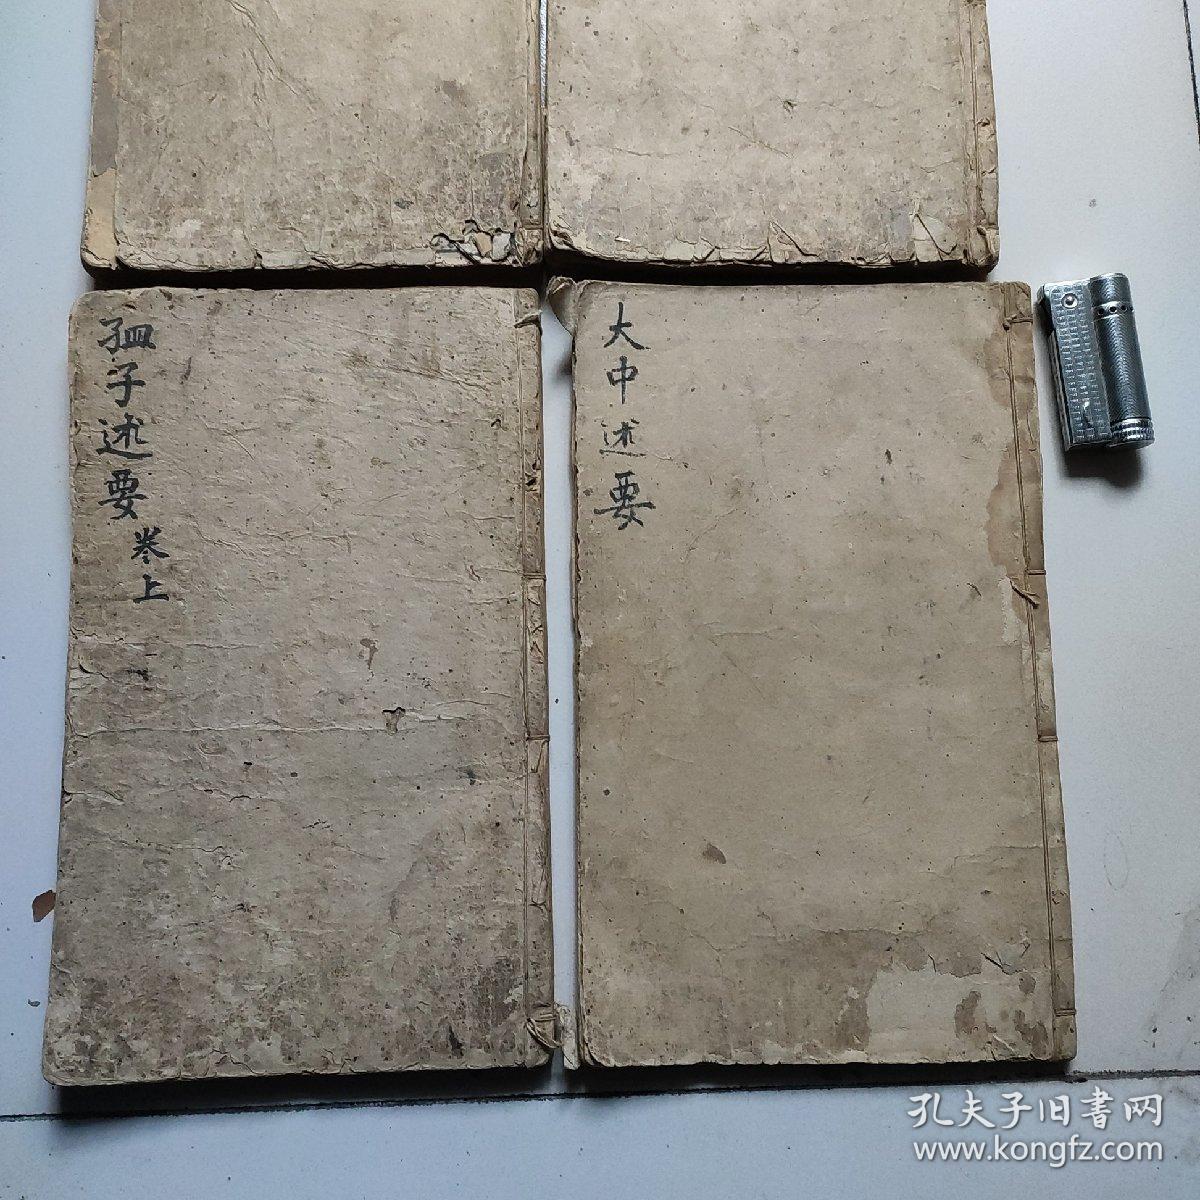 大中述要
孟子述要
卷上
孔夫子旧書网
www.kongfz.com